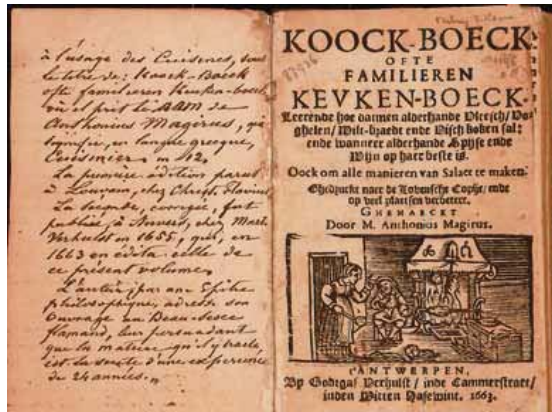 à l'usage des Cuisines, sous
le titre de: Koock-Boeck
ofte familieren Keuken-boeck
où il prit le nom de
Anthonius Magirus, qui
signifie, en langue grecque,
Cuisinier. in 12.
La première édition parut
à Louvain, chez Christ. Flavius
La seconde, corrigée, fut
publiée, à Anvers, chez Mart.
Verhulst en 1655, qui, en
1663 en édita celle de
ce présent volume.
L'auteur, par une Epitre
philosophique, adresse son
ouvrage au Beau-sexe
flamand, leur persuadant
que la matière qu'il y traite,
est la suite d'une expérience
de 24 années.
KOOCK-BOECK
OFTE
FAMILIEREN
KEVKEN-BOECK.
Leerende hoe datmen alderhande Vleesch/ Vo-
ghelen/ Wilt-braedt ende Visch koken sal:
ende wanneer alderhande Spijse ende
Wijn op haer beste is.
Oock om alle manieren van Salaet te maken.
Ghedruckt naer de Lovensche Copije/ ende
op veel plaetsen verbetert.
GHEMAECKT
Door M. Anthonius Magirus.
t'ANTWERPEN,
By Godtgaf Verhulst / inde Cammerstraet/
inden Witten Hasewint. 1663.